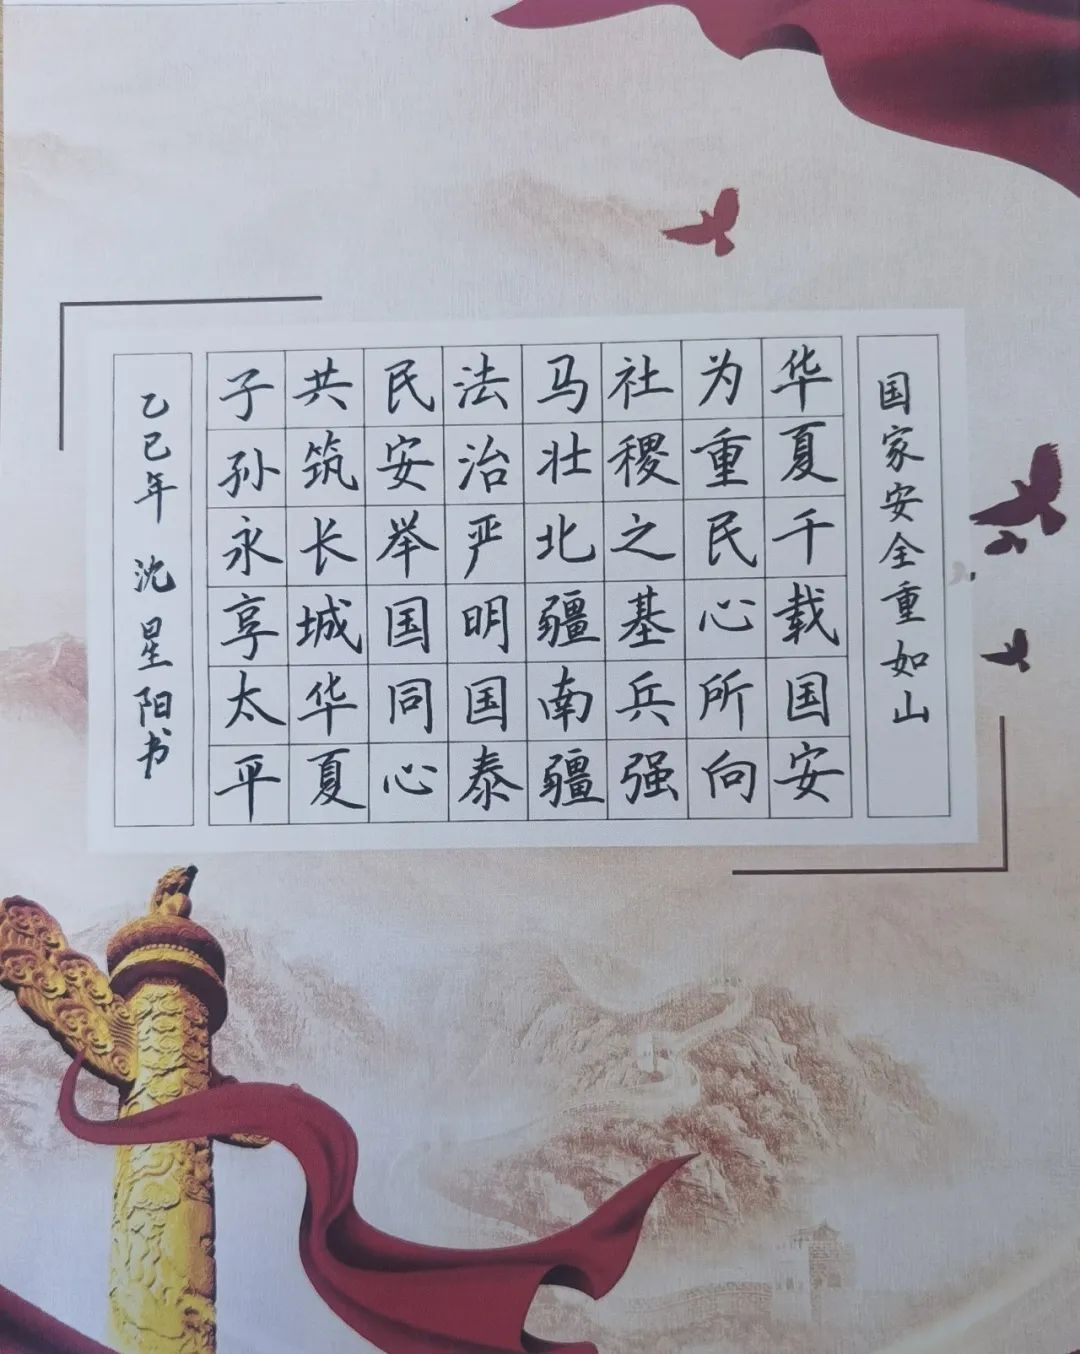 国家安全重如山
华夏千载国安
为重民心所向
社稷之基兵强
马壮北疆南疆
法治严明国泰
民安举国同心
共筑长城华夏
子孙永享太平
乙巳年 沈星阳书